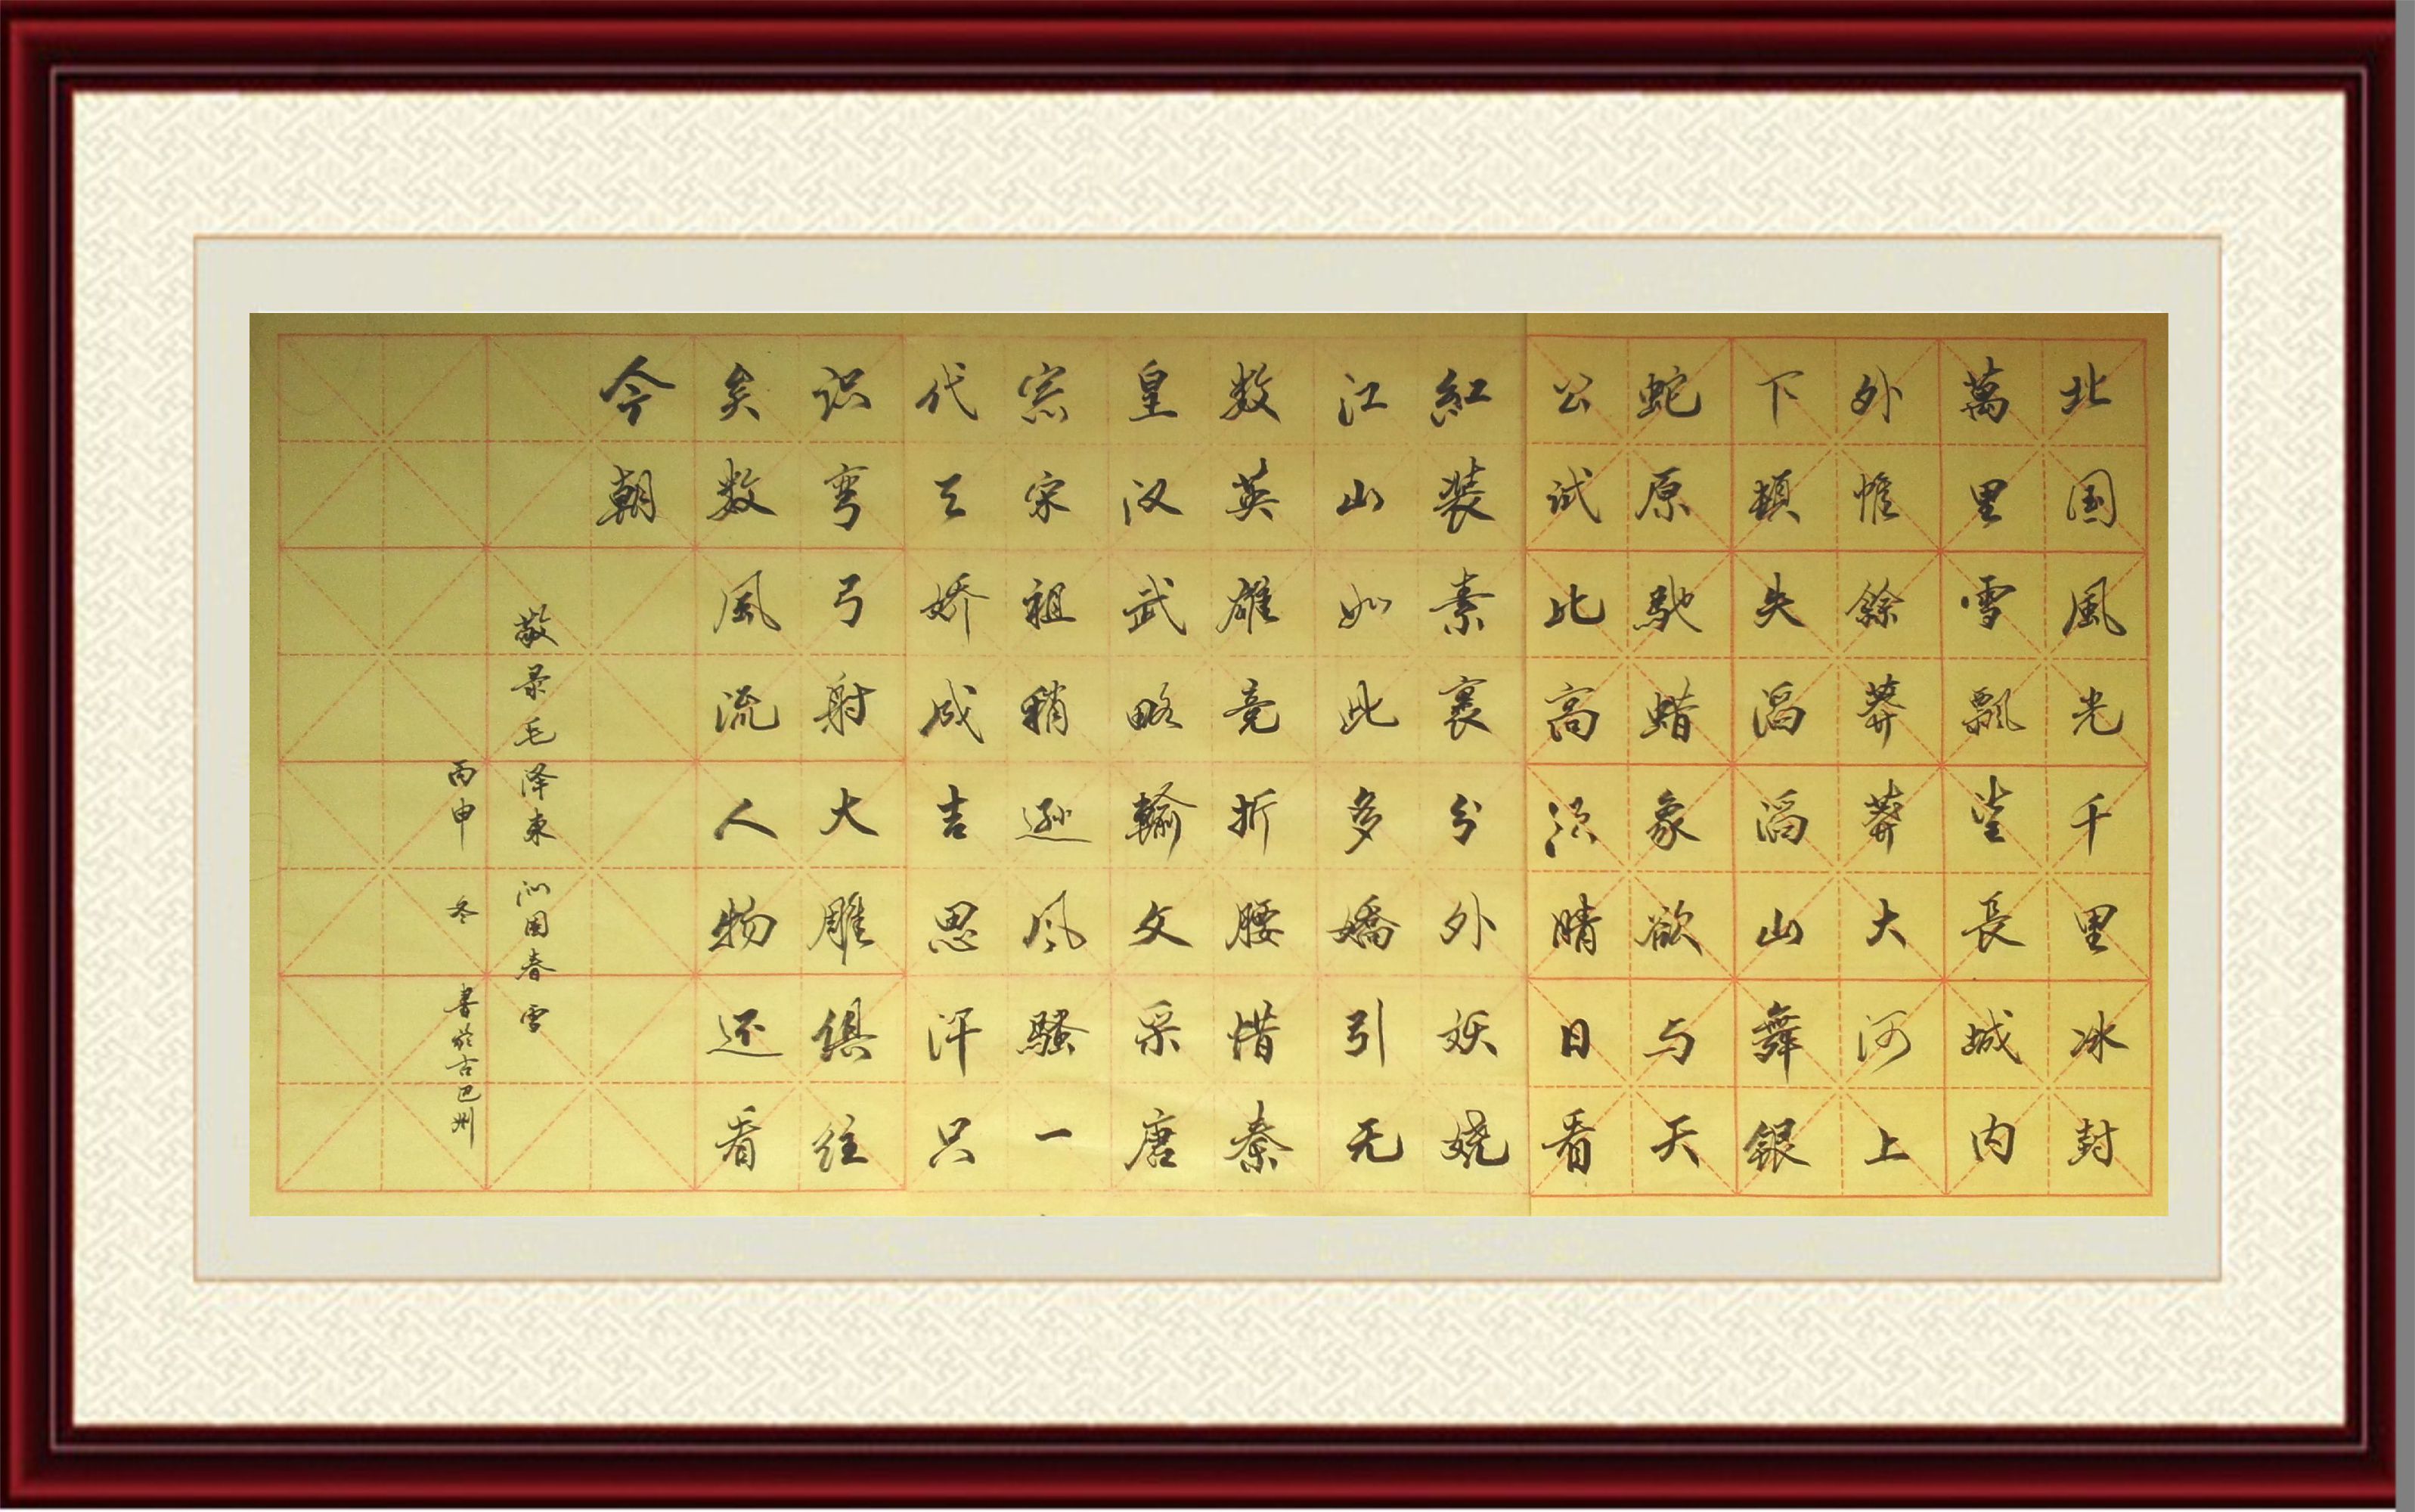 北国風光千里冰封
萬里雪飄望長城内
外惟餘莽莽大河上
下頓失滔滔山舞銀
蛇原馳蜡象欲与天
公试比高须晴日看
紅装素裹分外妖娆
江山如此多嬌引无
数英雄竞折腰惜秦
皇汉武略輸文采唐
宗宋祖稍逊风騷一
代天娇成吉思汗只
识弯弓射大雕俱往
矣数風流人物还看
今朝
敬录毛泽东 沁园春 雪
丙申 冬 書於古巴州